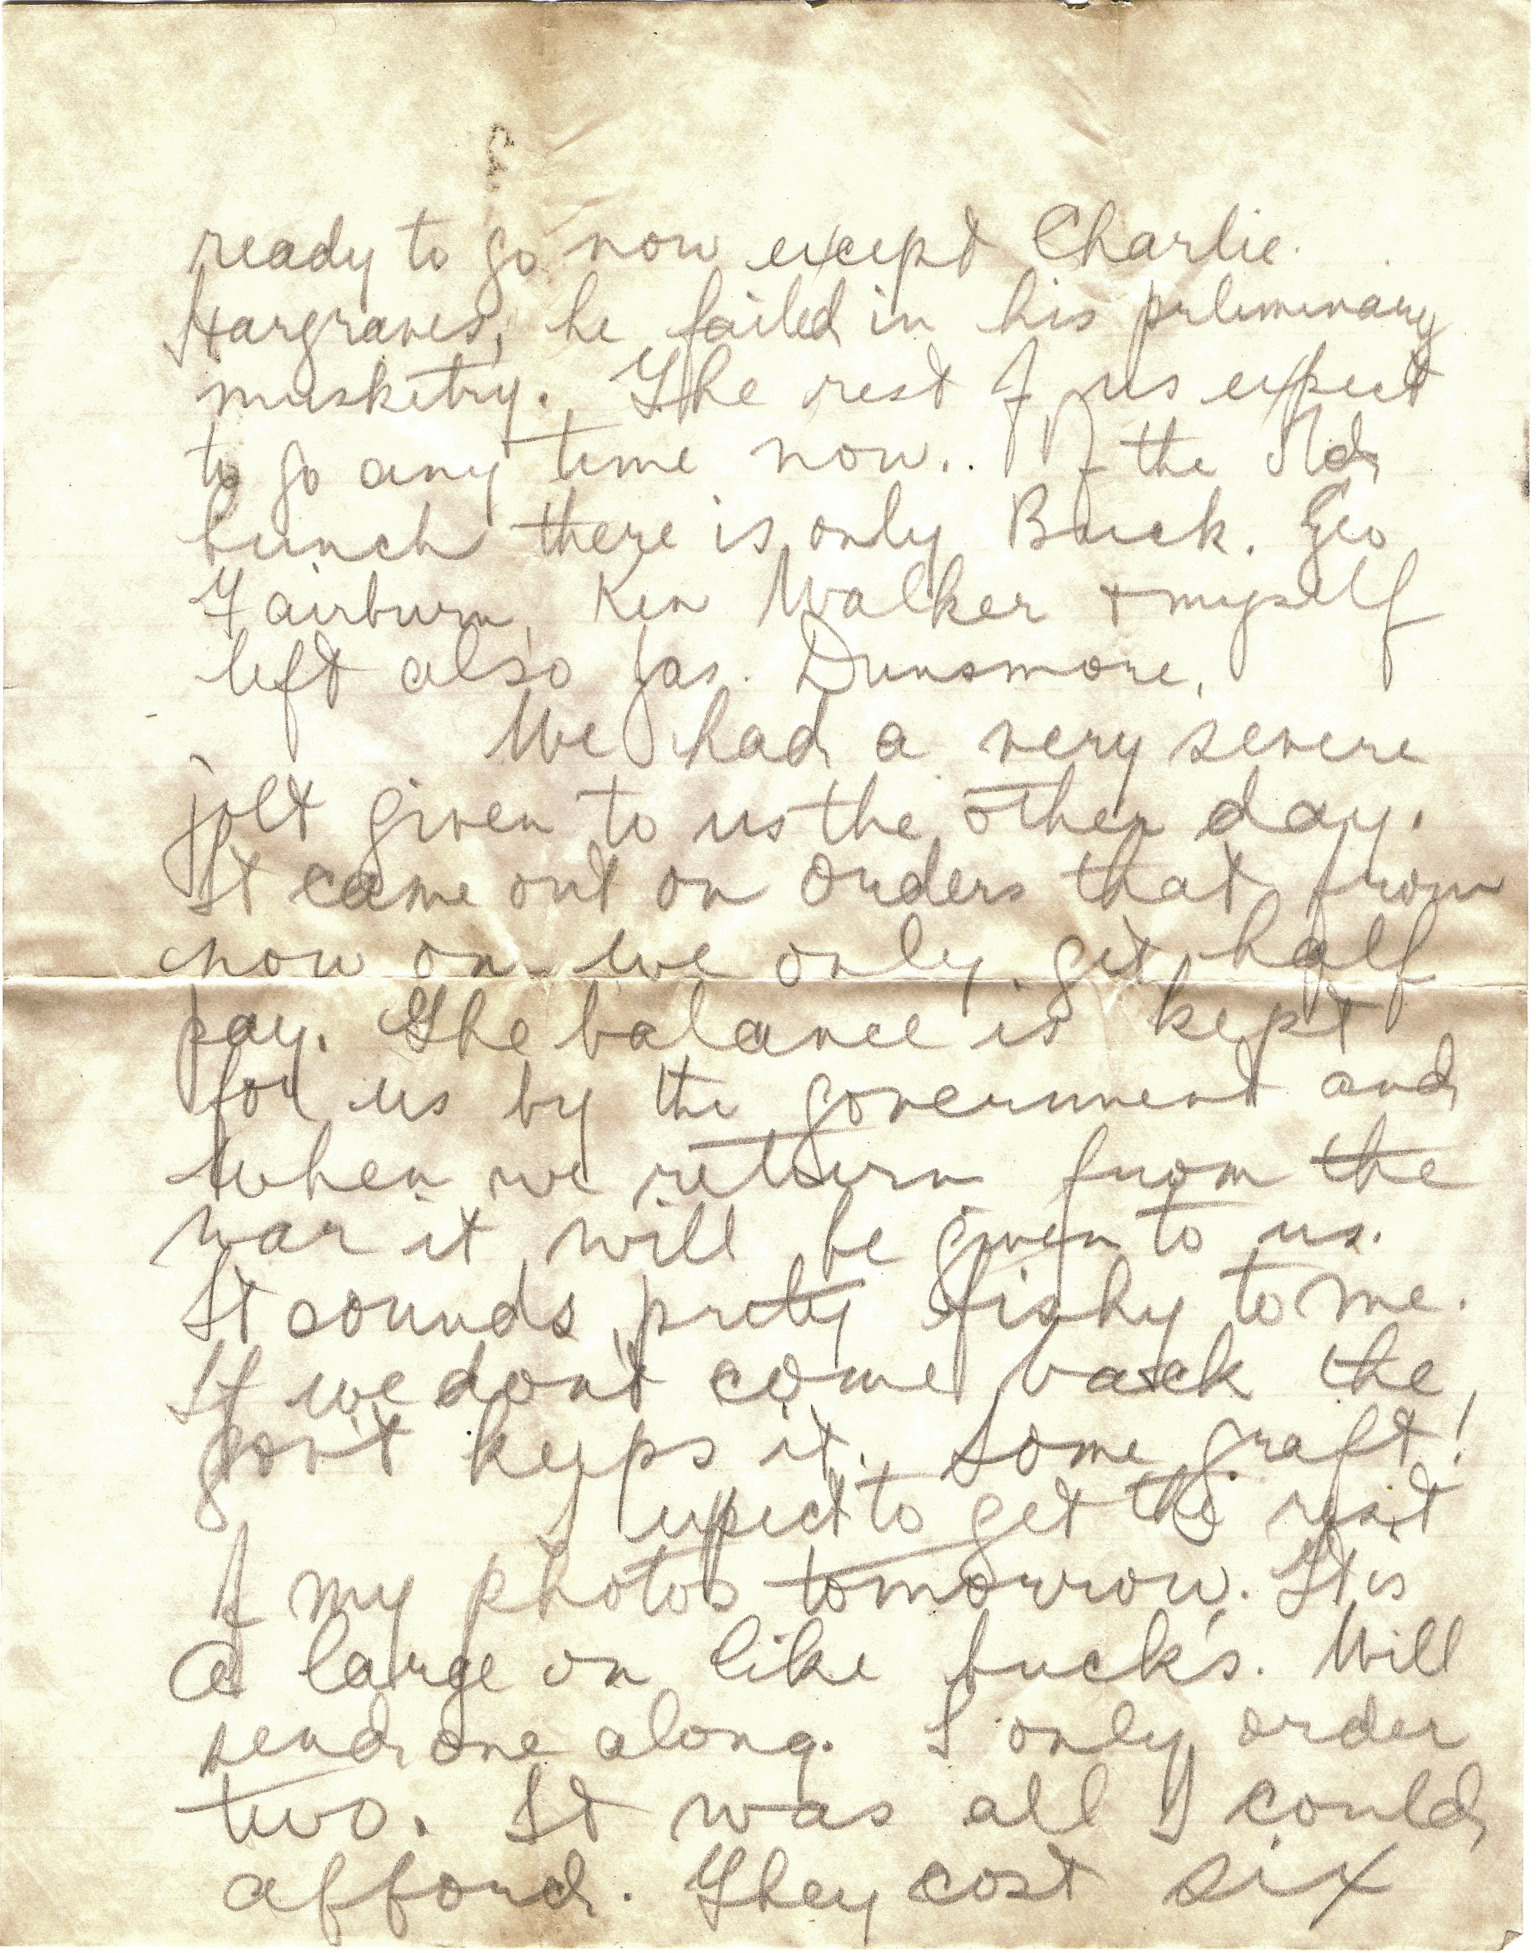 ready to go now except Charlie.
Hargraves, he failed in his preliminary
musketry. The rest of us expect
to go any time now. Of the old
bunch there is only Buck. Geo
Fairburn, Ken Walker + myself
left also Jas. Dunsmore.
We had a very severe
jolt given to us the other day.
It came out on orders that from
now on we only get half
pay. The balance is kept
for us by the government and
when we return from the
war it will be given to us.
It sounds pretty fishy to me.
If we don't come back the
gov't keeps it. Some graft!
I expect to get the rest
of my photos tomorrow. It is
a large on like buck's. Will
send one along. I only order
two. It was all I could
afford. They cost six